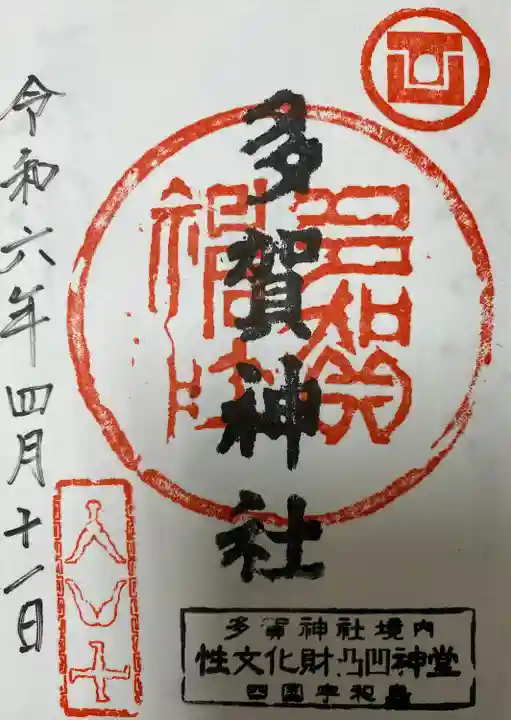 多賀神社
令和六年四月十一日
多賀神社境内
性文化財凸凹神堂
四国宇和島